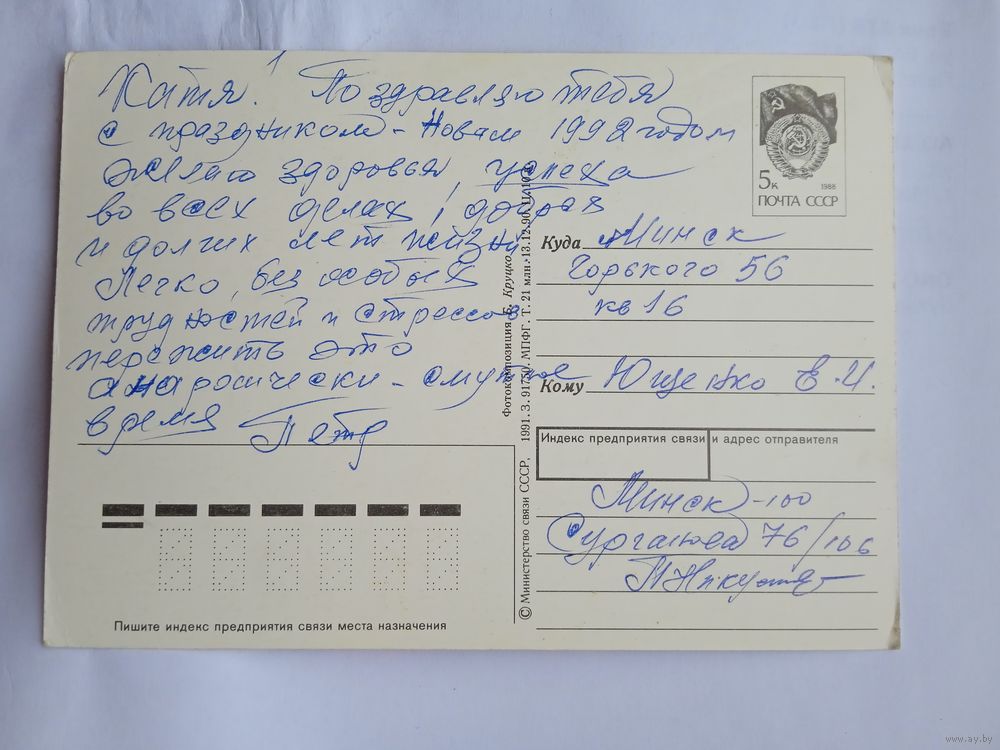 Катя! Поздравляю тебя
с праздником – Новым 1992 годом
Желаю здоровья, успеха
во всех делах, добрых
и долгих лет жизни
Легко, без особых
трудностей и стрессов
пережить это
анархически – смутное
время Петр
5к 1988
ПОЧТА СССР
Куда Минск
Горького 56
кв 16
Кому Ющенко Е.И.
Индекс предприятия связи и адрес отправителя
Минск-100
Сурганова 76/106
Пишите индекс предприятия связи места назначения
© Министерство связи СССР. 1991. З. МПФГ. Т. 21 млн. 13.12.90.
Фотокомпозиция Б. Круцко
www.ay.by